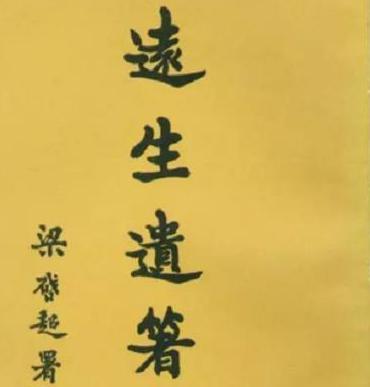 遠生遺箸
梁啓超署